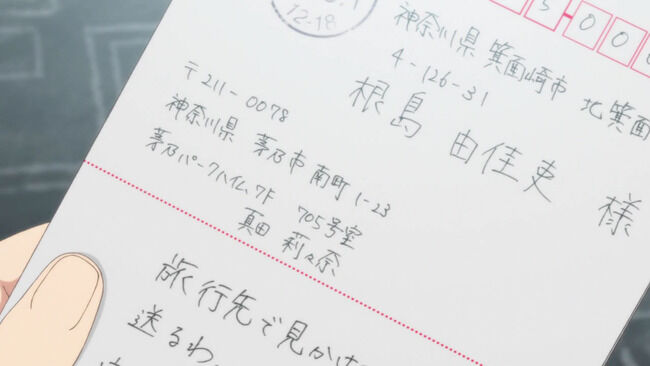 12-18
500
神奈川県 箕面崎市 北箕面
4-126-31
根島 由佳吏 様
〒211-0078
神奈川県 茅乃市 南町1-23
茅乃パークハイム7F 705号室
真田 莉々奈
旅行先で見かけ
送るわ